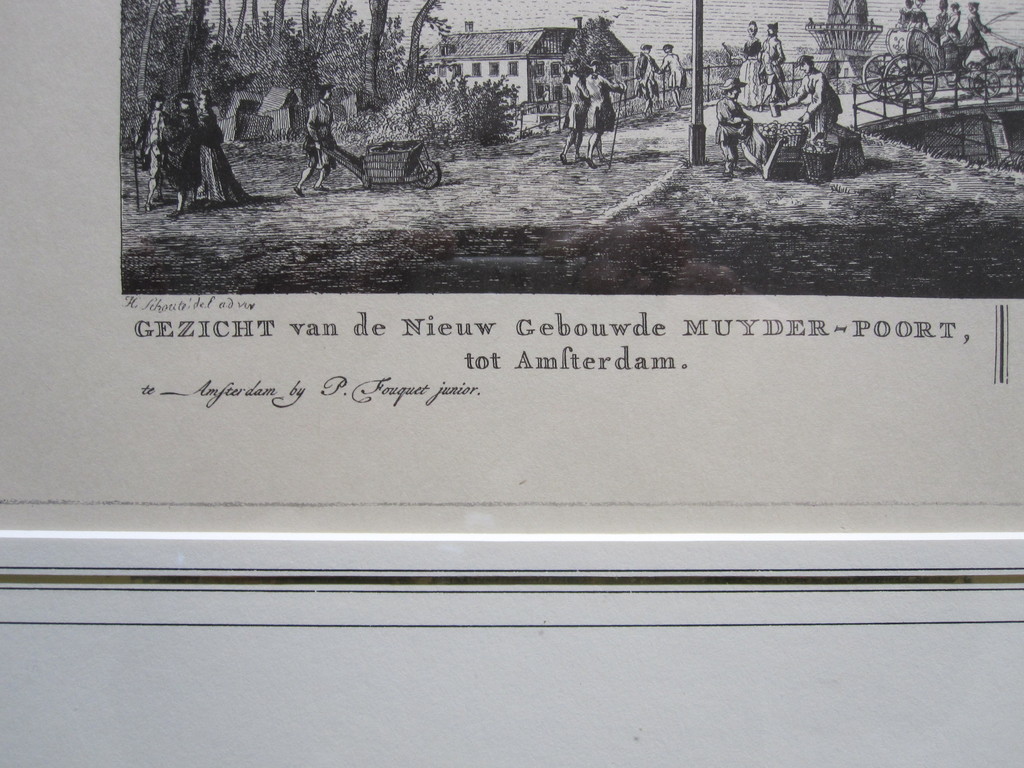 H. Schoute, del ad viv
GEZICHT van de Nieuw Gebouwde MUYDER-POORT,
tot Amſterdam.
te Amſterdam by P. Fouquet junior.